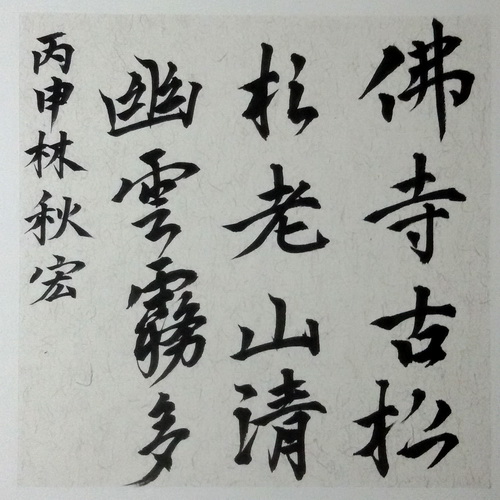 佛寺古松
杉老山清
幽雲霧多
丙申林秋宏